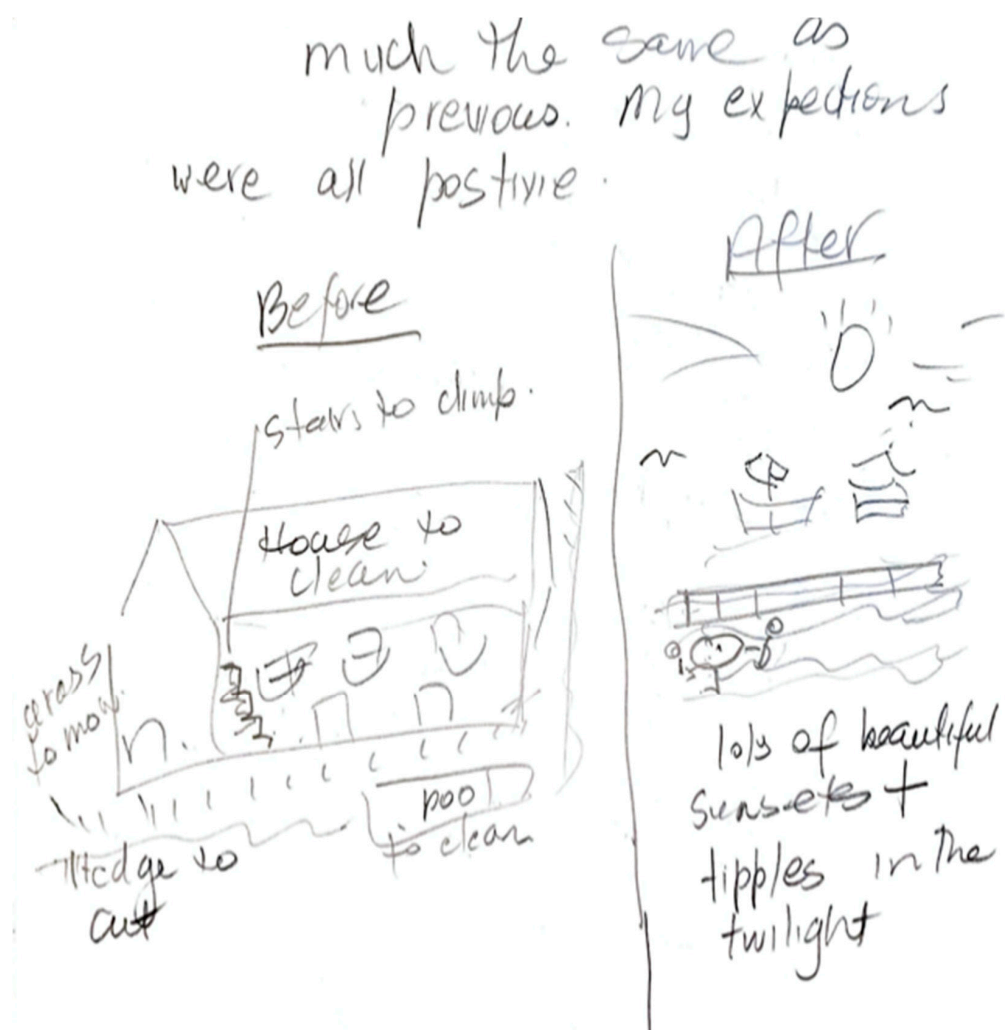 much the same as
previous. My expections
were all postivie.
Before
stairs to climb.
House to
clean.
grass
to mow.
pool
to clean
Hedge to
cut
After
lots of beautiful
sunsets +
tipples in the
twilight